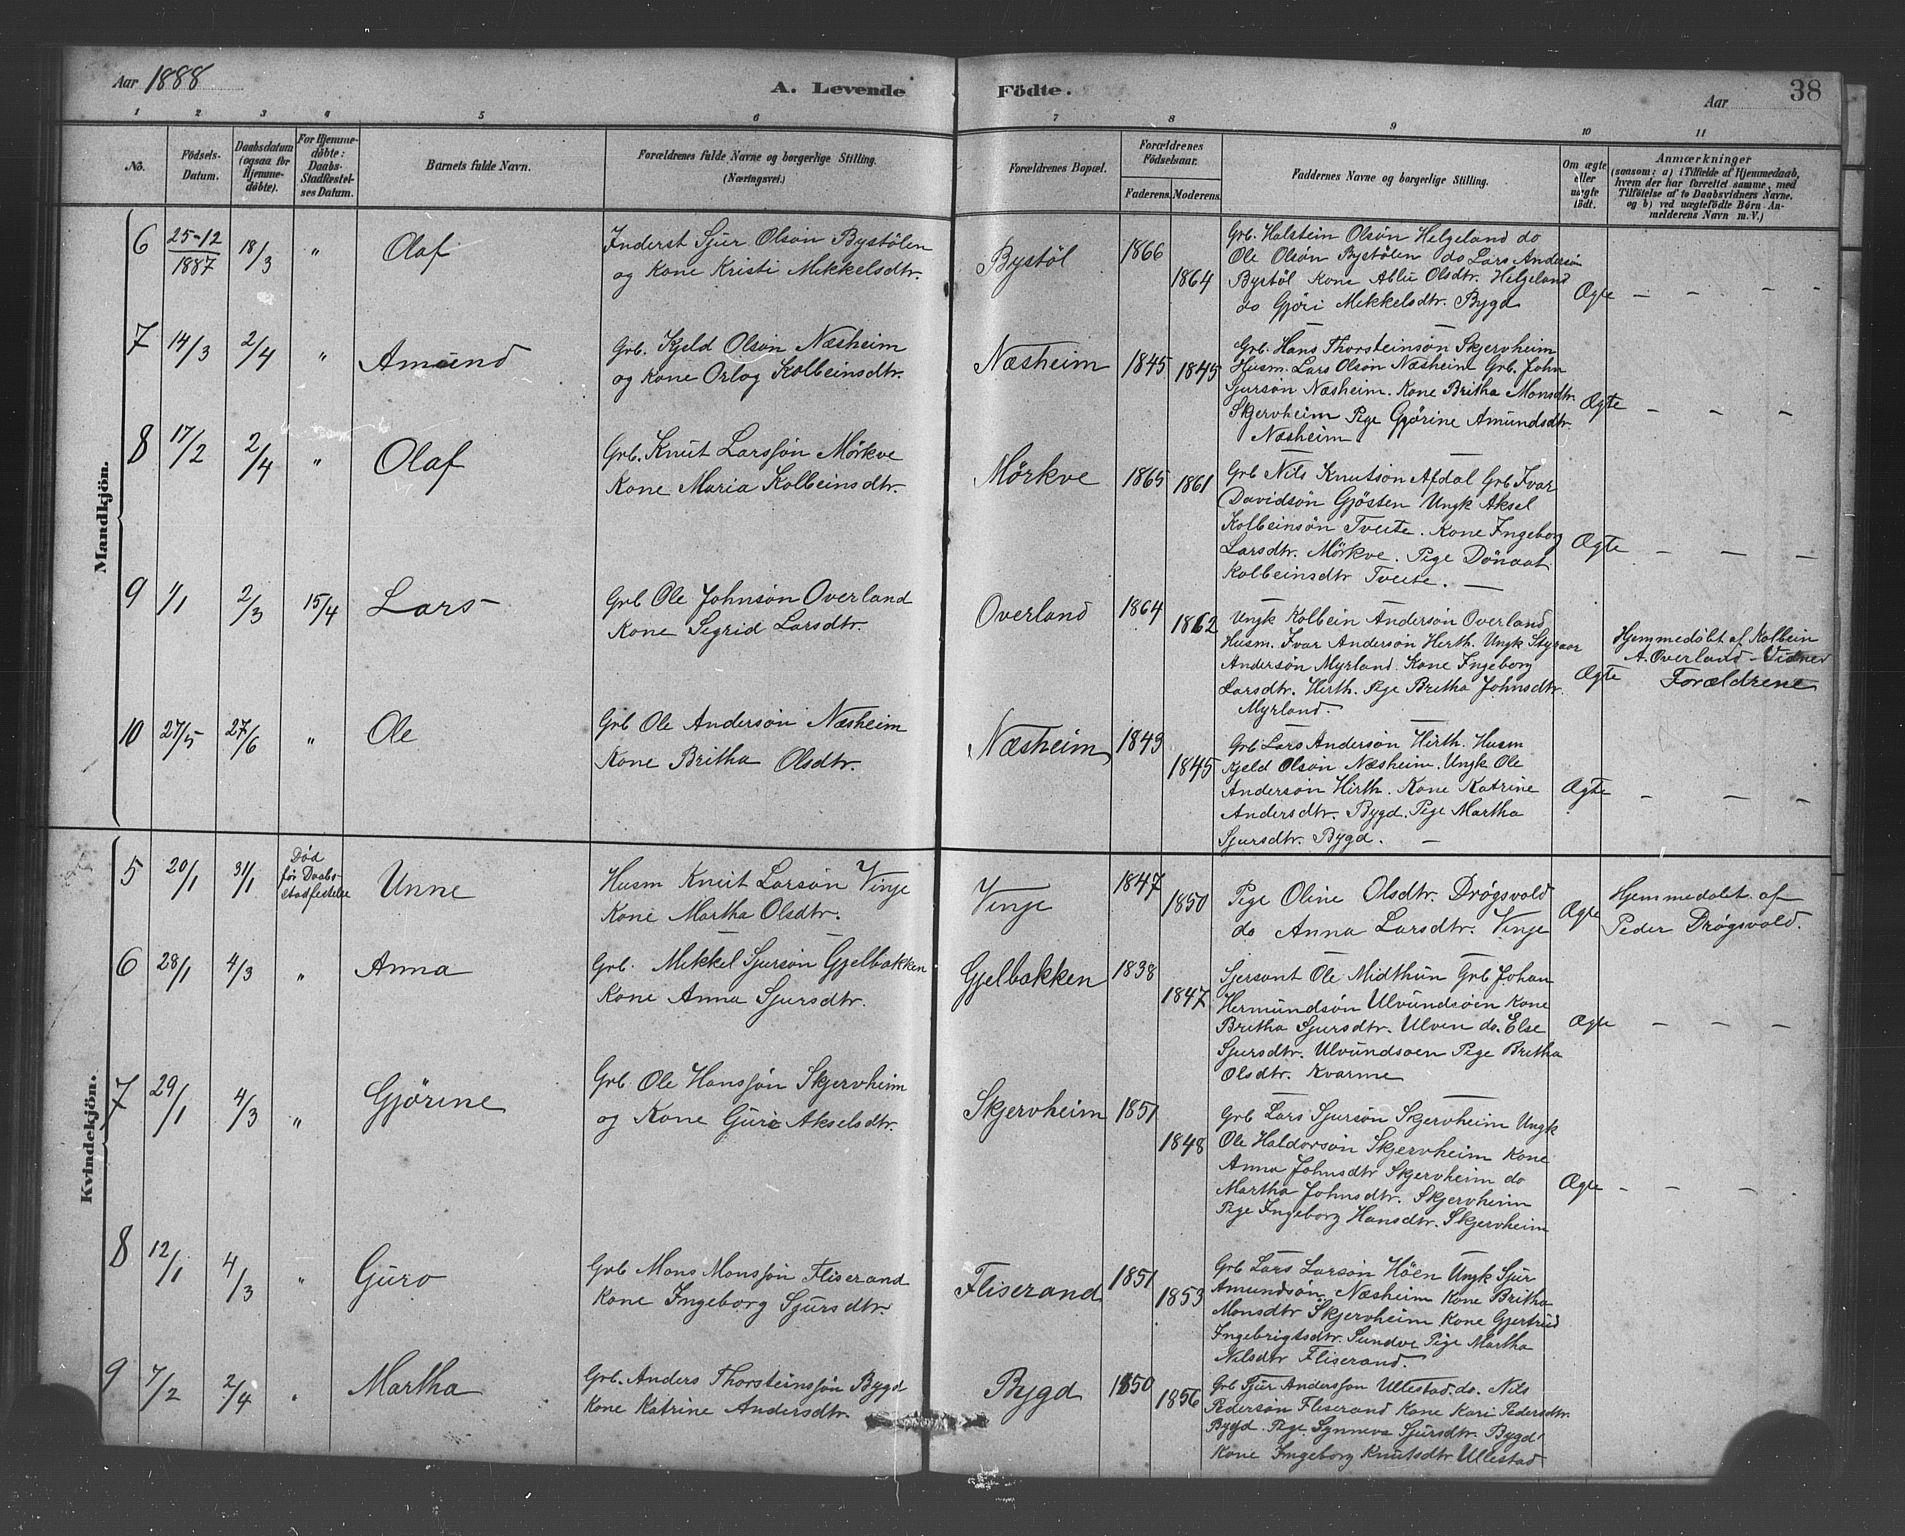 Aar 1888
A. Levende Födte.
Aar
38
1 2 3 4 5 6 7 8 9 10 11
No.
Födsels-
Datum.
Daabsdatum
(ogsaa for
Hjemme-
döbte).
For Hjemme-
döbte:
Daabs-
Stadfæstel-
ses Datum.
Barnets fulde Navn.
Forældrenes fulde Navne og borgerlige Stilling.
(Næringsvei.)
Forældrenes Bopæl.
Forældrenes
Födselsaar.
Faderens. Moderens.
Faddernes Navne og borgerlige Stilling.
Om ægte
eller
uægte
födt.
Anmærkninger
(saasom: a) i Tilfælde af Hjemmedaab,
hvem der har forrettet samme, med
Tilföielse af to Daabsvidners Navne,
og b) ved uægtefödte Börn An-
melderens Navn m. V.)
Mandkjön.
6 25-12 1887 18/3 " Olaf
Inderst Sjur Olsön Bystölen
og Kone Kristi Mikkelsdtr.
Bystöl 1866 1864
Grb. Halstein Olsön Helgeland do
Ole Olsön Bystölen do Lars Andersön
Bystöl Kone Ablu Olsdtr. Helgeland
do Gjöri Mikkelsdtr. Bygd
Ægte — — — —
7 14/3 2/4 " Amund
Grb. Kjeld Olsön Næsheim
og Kone Orlog Kolbeinsdtr.
Næsheim 1845 1845
Grb. Hans Thorsteinsön Skjervheim
Husm. Lars Olsön Næsheim Grb. John
Sjursön Næsheim. Kone Britha Monsdtr.
Skjervheim Pige Gjörine Amundsdtr.
Næsheim
Ægte — — —
8 17/2 2/4 " Olaf
Grb. Knut Larssön Mörkve
Kone Maria Kolbeinsdtr.
Mörkve 1865 1861
Grb Nils Knutsön Afdal Grb Ivar
Davidsön Gjösten Ungk Aksel
Kolbeinsön Tveite. Kone Ingeborg
Larsdtr. Mörkve. Pige Dönaat
Kolbeinsdtr Tveite. —
Ægte — — —
9 1/1 2/3 15/4 Lars
Grb Ole Johnsön Overland
Kone Sigrid Larsdtr.
Overland 1864 1862
Ungk Kolbein Andersön Overland
Husm. Ivar Andersön Hirth. Ungk Styraar
Andersön Myrland. Kone Ingeborg
Larsdtr. Hirth. Pige Britha Johnsdtr.
Myrland.
Ægte
Hjemmedöbt af Kolbein
A. Overland — Vidner
Forældrene
10 27/5 27/6 " Ole
Grb Ole Andersön Næsheim
Kone Britha Olsdtr.
Næsheim 1843 1845
Grb Lars Andersön Hirth. Husm
Kjeld Olsön Næsheim. Ungk Ole
Andersön Hirth. Kone Katrine
Andersdtr. Bygd. Pige Martha
Sjursdtr. Bygd. —
Ægte — — —
Kvindekjön.
5 20/1 31/1
Död
för Daabs-
stadfestelse
Unne
Husm Knut Larsön Vinje
Kone Martha Olsdtr.
Vinje 1847 1850
Pige Oline Olsdtr. Drögsvold
do Anna Larsdtr. Vinje
Ægte
Hjemmedöbt af
Peder Drögsvold.
6 28/1 4/3 " Anna
Grb. Mikkel Sjursön Gjelbakken
Kone Anna Sjursdtr.
Gjelbakken 1838 1847
Sjersant Ole Midthun Grb Johan
Hermundsön Ulvundsöen Kone
Britha Sjursdtr. Ulven do. Else
Sjursdtr. Ulvundsoen Pige Britha
Olsdtr. Kvarme
Ægte — — —
7 29/1 4/3 " Gjörine
Grb Ole Hanssön Skjervheim
og Kone Guri Akselsdtr.
Skjervheim 1851 1848
Grb Lars Sjursön Skjervheim Ungk
Ole Haldorsön Skjervheim Kone
Anna Johnsdtr Skjervheim do
Martha Johnsdtr. Skjervheim
Pige Ingeborg Hansdtr. Skjervheim
Ægte — — —
8 12/1 4/3 " Guro
Grb Mons Monssön Fliserand
Kone Ingeborg Sjursdtr.
Fliserand 1851 1853
Grb Lars Larsön Höen Ungk Sjur
Amundsön Næsheim Kone Britha
Monsdtr Skjervheim Kone Gjertrud
Ingebrigtsdtr. Sundve Pige Martha
Nilsdtr Fliserand.
9 7/2 2/4 " Martha
Grb. Anders Thorsteinssön Bygd
Kone Katrine Andersdtr.
Bygd 1850 1856
Grb Sjur Anderssön Ullestad. do. Nils
Pedersön Fliserand Kone Kari Pedersdtr.
Bygd. Pige Synneva Sjursdtr. Bygd
Kone Ingeborg Knutsdtr Ullestad